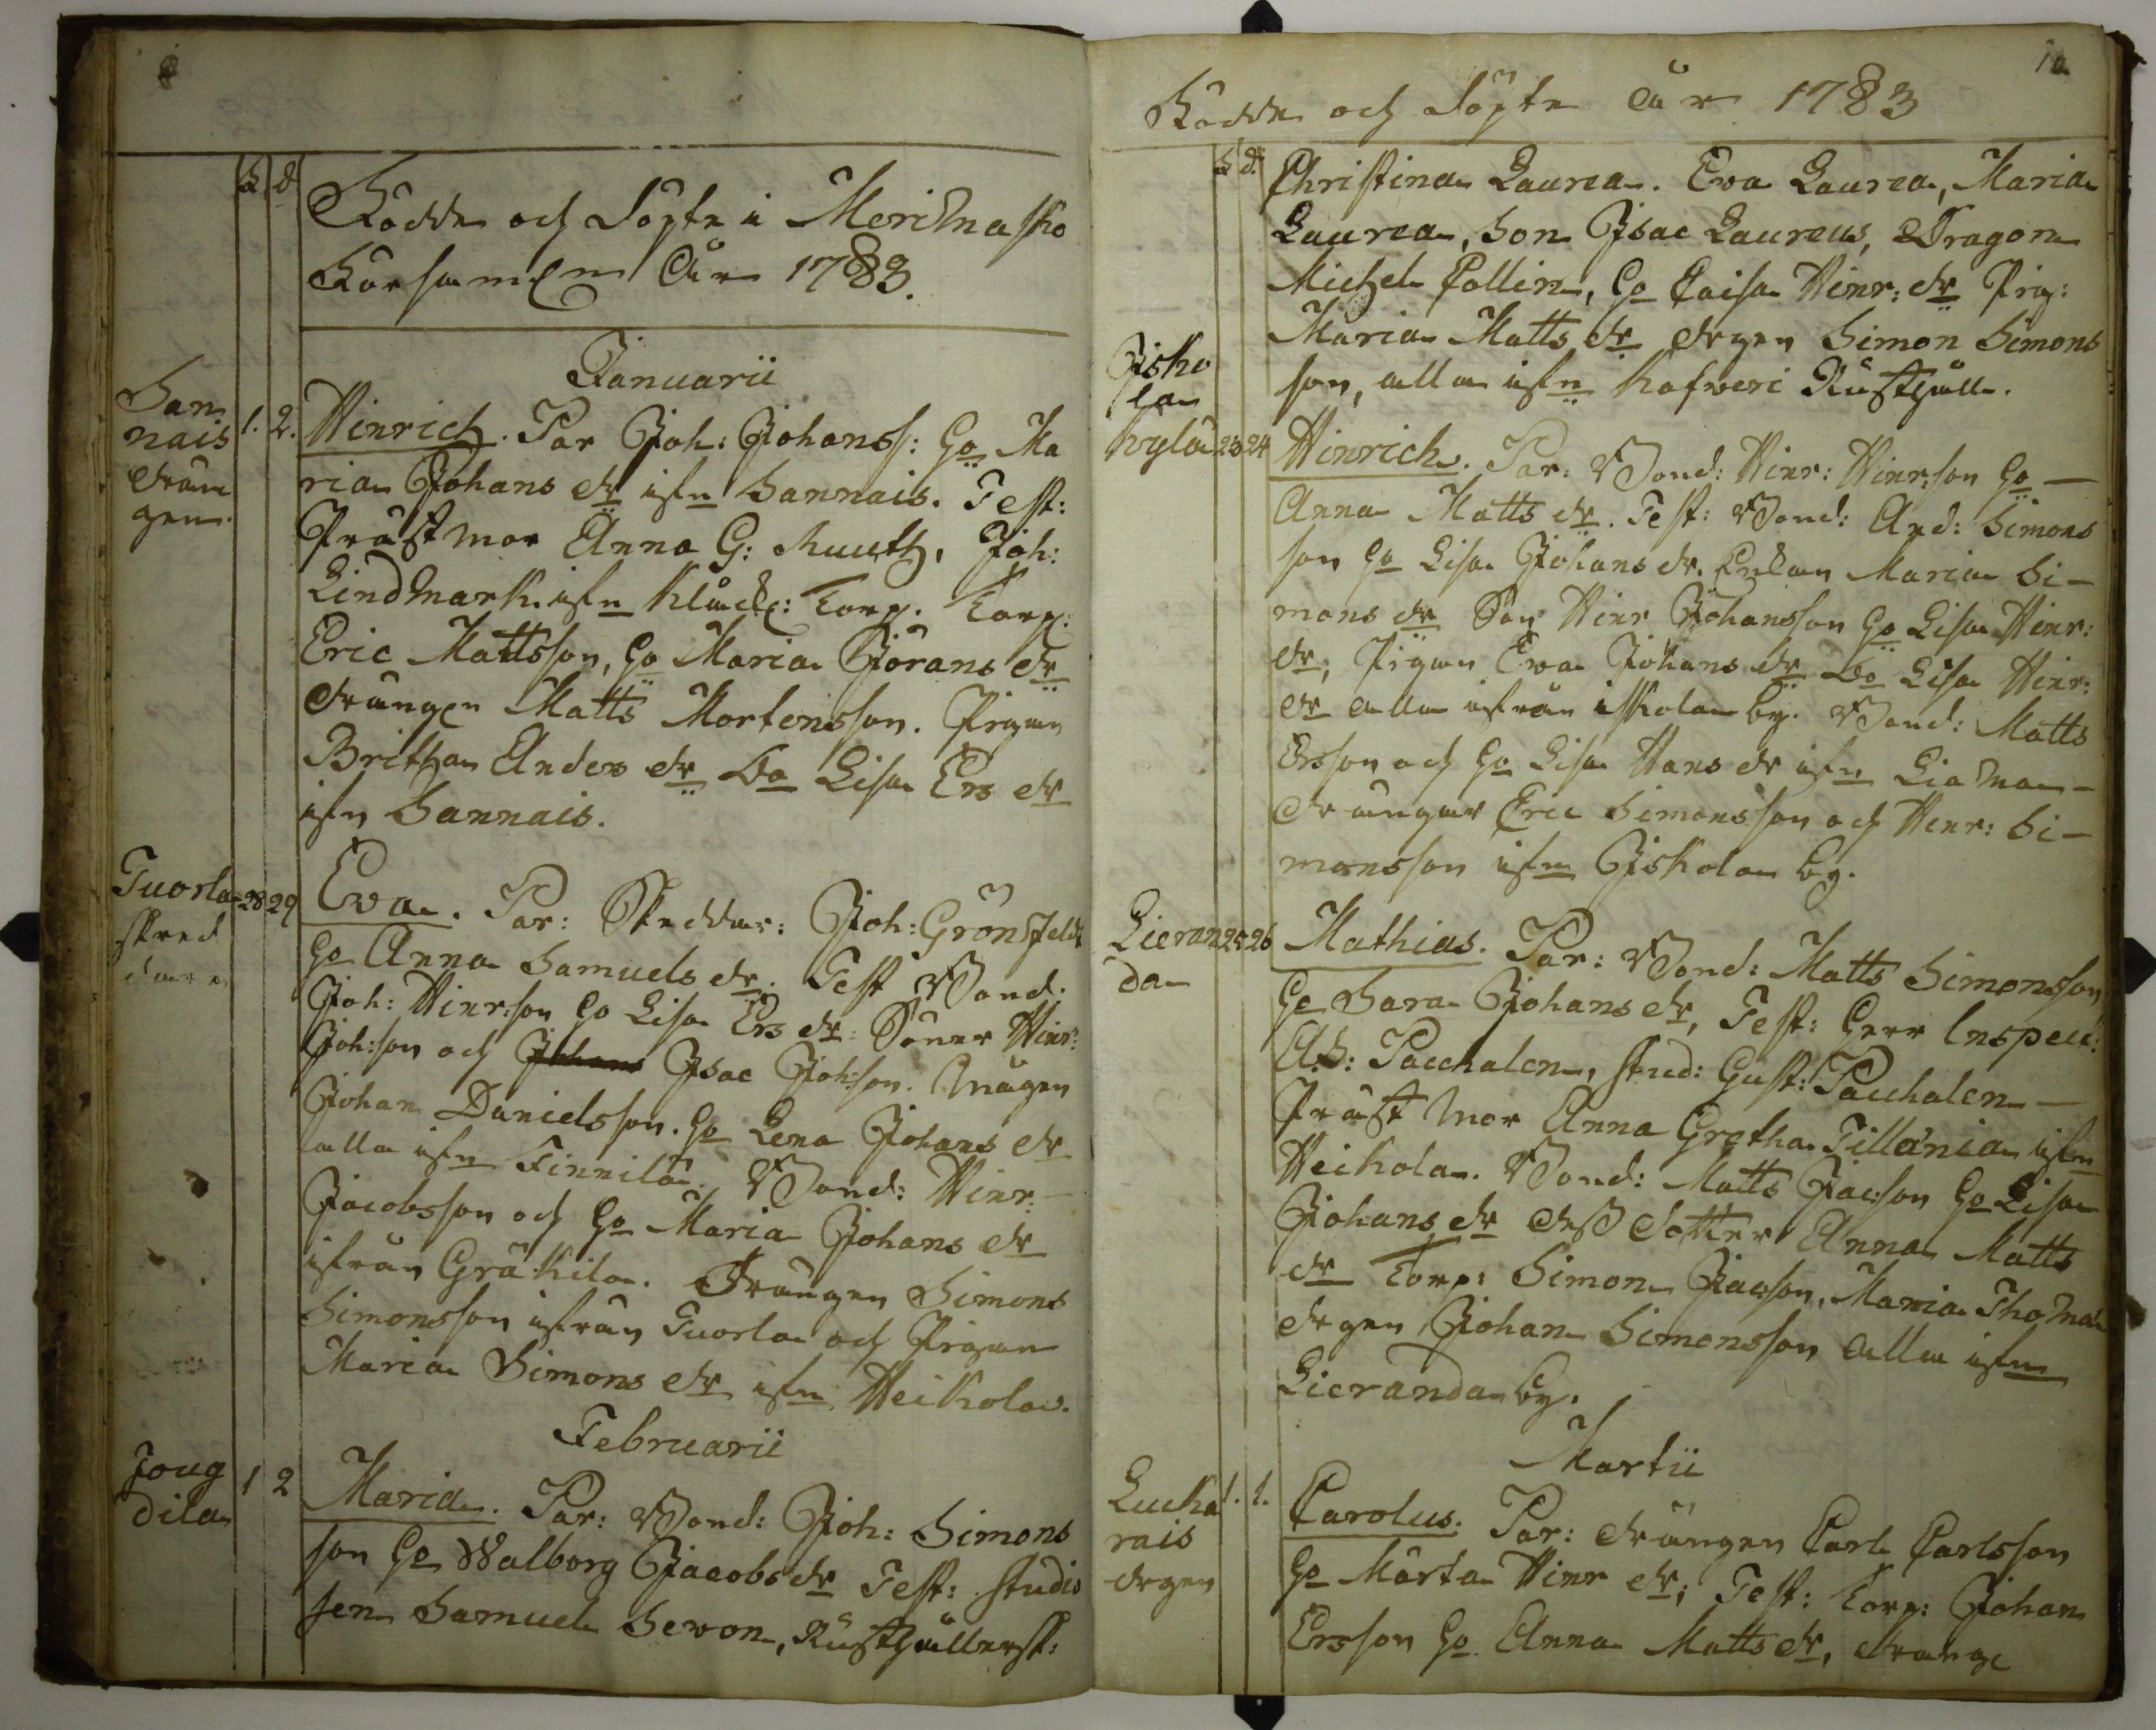 F. d.
Födde och Döpte i Merimasko
Församl:n År 1783.
Januarii
San
nais
dräng
gen.
1. 2.
Hinrich. Par Joh: Johanss: Ho Ma
ria Johans dr ifrn Sannais. Test:
Präst mor Anna G: Muuth, Joh:
Lindmark ifrn Torp. Torp:
Eric Mattsson, Ho Maria Jörans dr
drängen Matts Mortensson. Pigan
Britha Anders dr Do Lisa Ers dr
ifrn Sannais.
Tuorla
skred
dare
28 29
Eva. Par: Skeddar: Joh: Grönfeldt
Ho Anna Samuels dr. Test Bond.
Joh: Hinr:son Ho Lisa Ers dr. Söner Hinr:
Joh:son och Johans Isac Joh:son. Mågen
Johan Danielsson. Ho Lena Johans dr
alla ifrn Finnilä. Bond: Hinr:
Jacobsson och Ho Maria Johans dr
ifrån Gräkilä. Drängen Simons
Simonsson ifrån Tuorla och Pigan
Maria Simons dr ifrn Heikola.
Februarii
Joug
dila
1 2
Maria. Par: Bond: Joh: Simons
son Ho Walborg Jacobs dr Test: studio
sen Samuel Sevon, Rusthållersk:
10
Födde och Döpte År 1783
F d.
Christina Laurea. Eva Laurea, Maria
Laurea, Son Isac Laureus, Dragon
Michel Collin, Ho Caisa Hinr: dr Pig:
Maria Matts dr drgen Simon Simons
son, alla ifrn Hafveri Rusthåll.
Isko
la
kylä
23 24
Hinrich. Par: Bond: Hinr: Hinr:son Ho
Anna Matts dr. Test: Bond: And: Simons
son Ho Lisa Johans dr. Enkan Maria Si-
mons dr Son Hinr Johansson Ho Lisa Hinr:
dr; Pigan Eva Johans dr Do Lisa Hinr:
dr alla ifrån iskola by. Bond: Matts
Ersson och Ho Lisa Hans dr ifrn Liama
drängar Eric Simonsson och Hinr: Si-
monsson ifrn Iskola by.
Lieran
da
25 26
Mathias. Par: Bond: Matts Simonsson
Ho Sara Johans dr, Test: Herr Inspect:
A.S: Pacchalen, stud: Gust: Pacchalen
Präst mor Anna Gretha Tillänia ifrn
Heikola. Bond: Matts Jac:son Ho Lisa
Johans dr dess dotter Anna Matts
dr Torp: Simon Jacsson, Maria Thoma
drgen Johan Simonsson alla ifrn
Lieranda by.
Martii
Lucka
rais
drgen
1. 1.
Carolus. Par: drängen Carl Carlsson
Ho Märta Hinr dr; Test: Torp: Johan
Ersson Ho Anna Matts dr, dränge